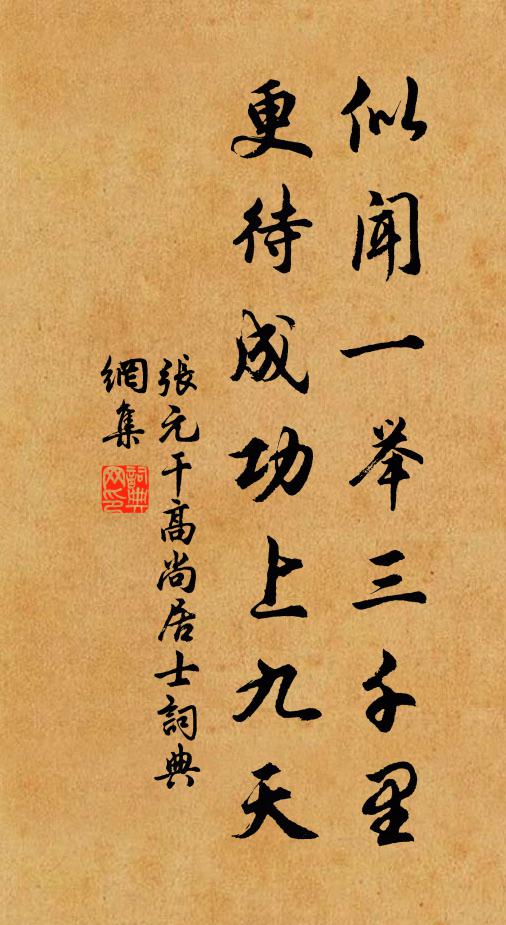 似闻一举三千里
更待成功上九天
張元干高尚居士詞典
網集
詞典
网印